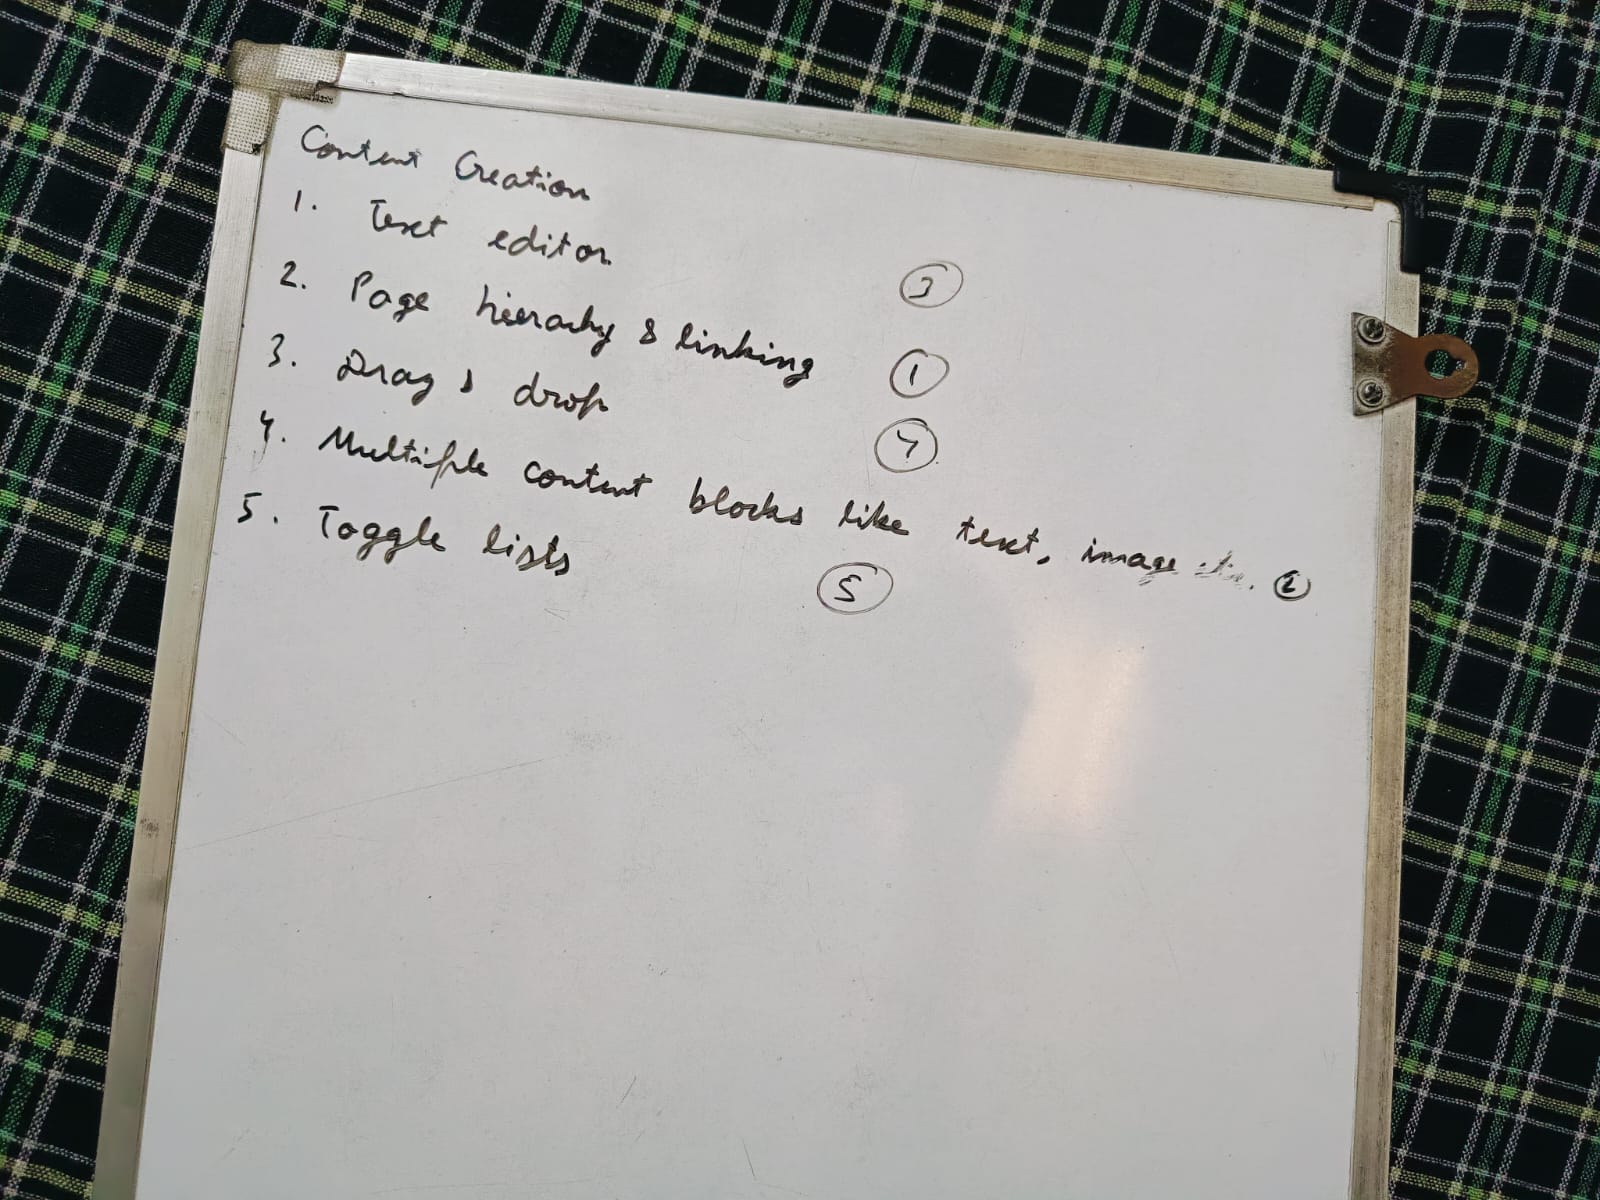 Content Creation
1. Text editor ③
2. Page hierachy & linking ①
3. Drag & drop ④
4. Multiple content blocks like text, image etc. ②
5. Toggle lists ⑤